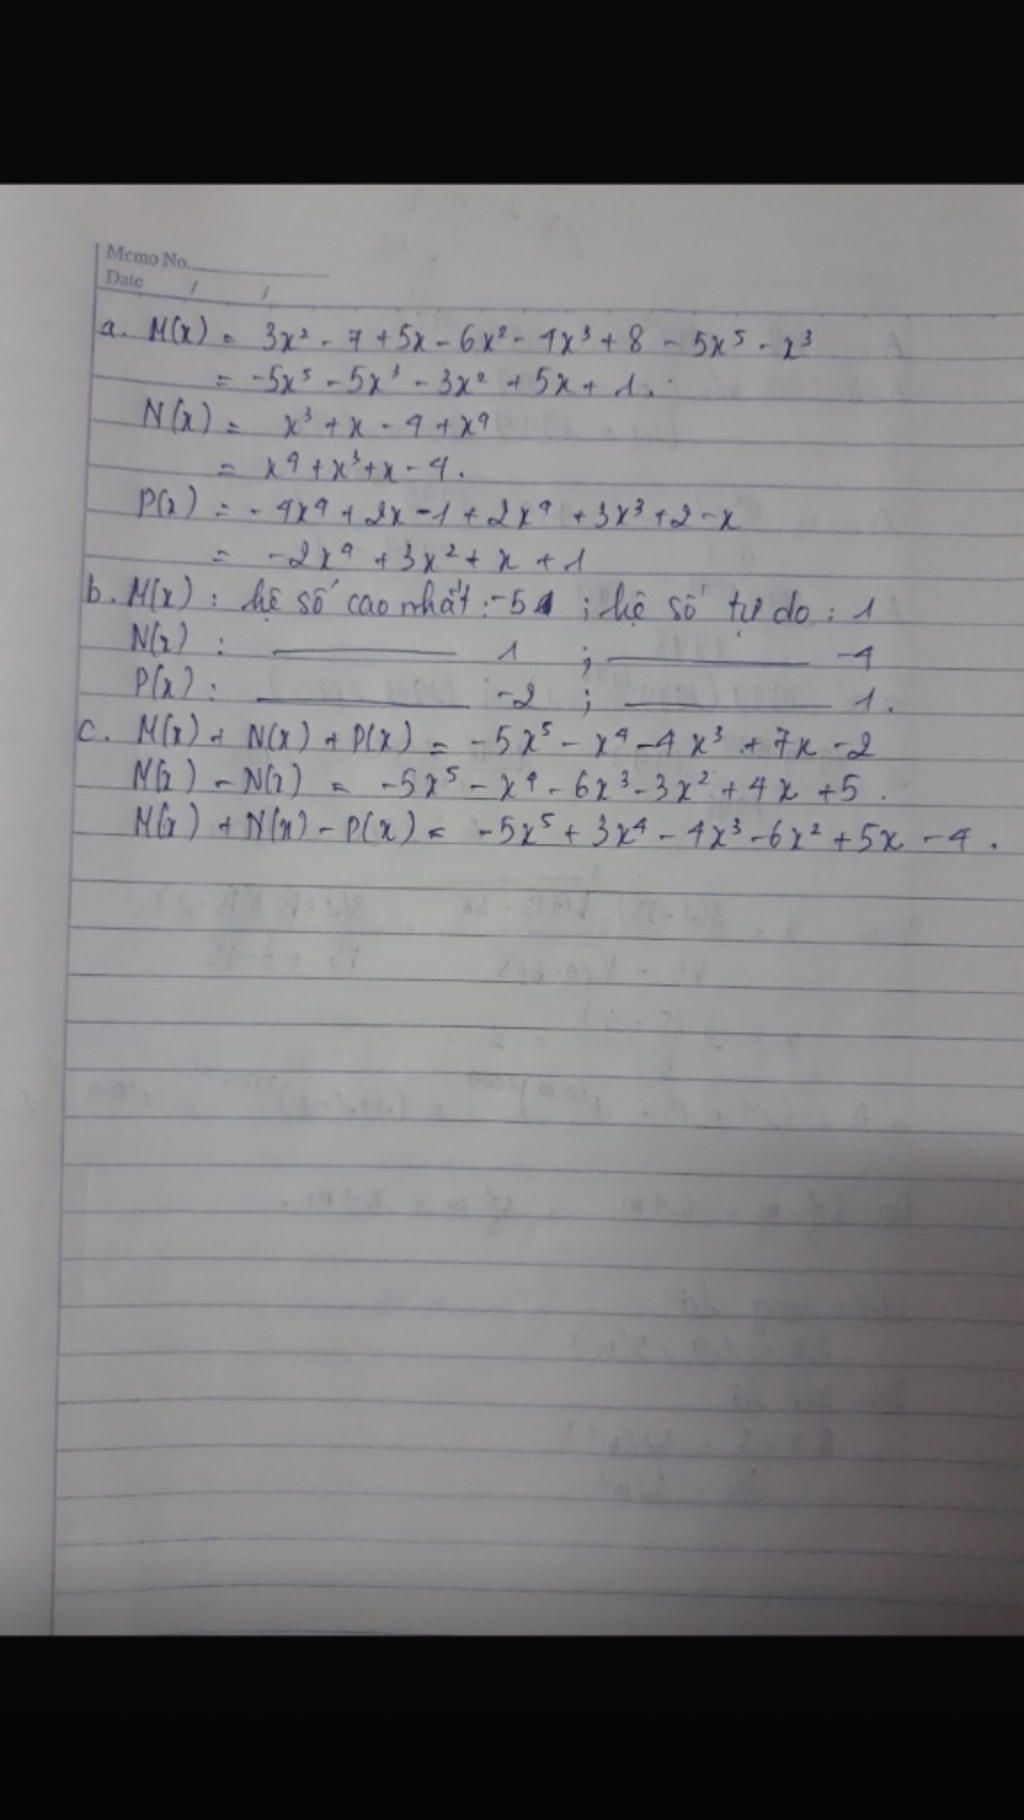 Memo No.
Date / /
a. M(x) = 3x² - 7 + 5x - 6x² - 4x³ + 8 - 5x⁵ - x³
= -5x⁵ - 5x³ - 3x² + 5x + 1.
N(x) = x³ + x - 4 + x⁴
= x⁴ + x³ + x - 4.
P(x) = -4x⁴ + 2x - 1 + 2x⁴ + 3x³ + 2 - x
= -2x⁴ + 3x² + x + 1
b. M(x) : hệ số cao nhất : -5 ; hệ số tự do : 1
N(x) : ____ 1 ; ____ -4
P(x) : ____ -2 ; ____ 1.
c. M(x) + N(x) + P(x) = -5x⁵ - x⁴ - 4x³ + 7x - 2
M(x) - N(x) = -5x⁵ - x⁴ - 6x³ - 3x² + 4x + 5.
M(x) + N(x) - P(x) = -5x⁵ + 3x⁴ - 4x³ - 6x² + 5x - 4.